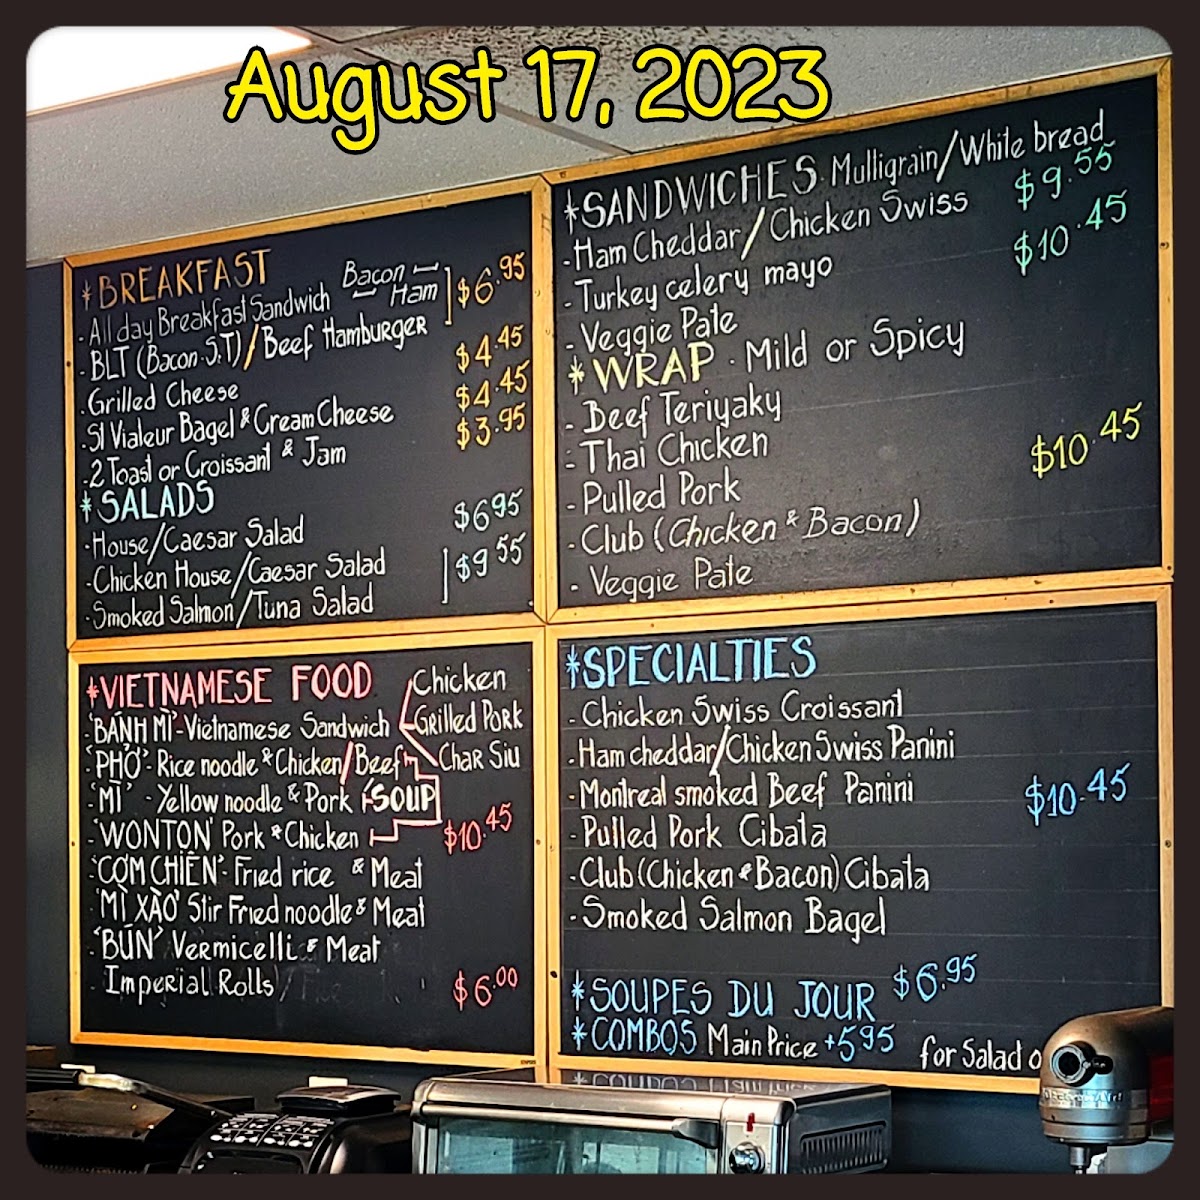 August 17, 2023
*BREAKFAST
-All day Breakfast Sandwich Bacon Ham $6.95
-BLT (Bacon.S.T)/Beef Hamburger
-Grilled Cheese $4.45
-St Vialeur Bagel & Cream Cheese $4.45
-2 Toast or Croissant & Jam $3.95
*SALADS
-House/Caesar Salad $6.95
-Chicken House/Caesar Salad $9.55
-Smoked Salmon/Tuna Salad
*SANDWICHES Mulligrain/White bread
-Ham Cheddar/Chicken Swiss $9.55
-Turkey celery mayo $10.45
-Veggie Pate
*WRAP . Mild or Spicy
-Beef Teriyaky
-Thai Chicken
-Pulled Pork $10.45
-Club (Chicken & Bacon)
-Veggie Pate
*VIETNAMESE FOOD
'BÁNH MÌ'-Vietnamese Sandwich Chicken Grilled Pork Char Siu
'PHỞ'-Rice noodle & Chicken/Beef
'MÌ' - Yellow noodle & Pork SOUP
'WONTON' Pork & Chicken $10.45
'CƠM CHIÊN'- Fried rice & Meat
'MÌ XÀO' Stir Fried noodle & Meat
'BÚN' Vermicelli & Meat
Imperial Rolls/ $6.00
*SPECIALTIES
-Chicken Swiss Croissant
-Ham cheddar/Chicken Swiss Panini
-Montreal smoked Beef Panini $10.45
-Pulled Pork Cibata
-Club (Chicken & Bacon) Cibata
-Smoked Salmon Bagel
*SOUPES DU JOUR $6.95
*COMBOS Main Price +5.95 for Salad